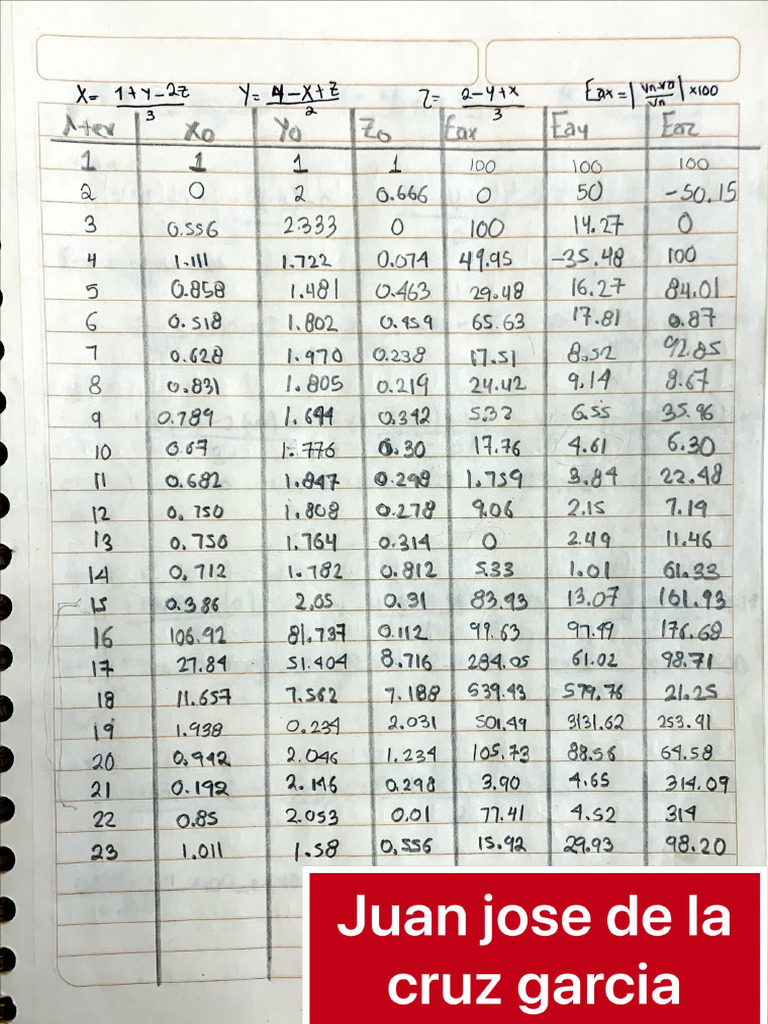 X= 1+y-2z/3 Y= 4-x+z/2 Z= 2-y+x/3 Eax=|vn-v0/vn|x100
iter X0 Y0 Z0 Eax Eay Eaz
1 1 1 1 100 100 100
2 0 2 0.666 0 50 -50.15
3 0.556 2.333 0 100 14.27 0
4 1.111 1.722 0.074 49.95 -35.48 100
5 0.858 1.481 0.463 29.48 16.27 84.01
6 0.518 1.802 0.459 65.63 17.81 0.87
7 0.628 1.970 0.238 17.51 8.52 92.85
8 0.831 1.805 0.219 24.42 9.14 8.67
9 0.789 1.694 0.342 5.32 6.55 35.96
10 0.67 1.776 0.30 17.76 4.61 6.30
11 0.682 1.847 0.298 1.759 3.84 22.48
12 0.750 1.808 0.278 9.06 2.15 7.19
13 0.750 1.764 0.314 0 2.49 11.46
14 0.712 1.782 0.812 5.33 1.01 61.33
15 0.386 2.05 0.31 83.93 13.07 161.93
16 106.92 81.737 0.112 99.63 97.49 176.68
17 27.84 51.404 8.716 284.05 61.02 98.71
18 11.657 7.562 7.188 539.43 579.76 21.25
19 1.938 0.234 2.031 501.49 3131.62 253.91
20 0.942 2.046 1.234 105.73 88.56 64.58
21 0.192 2.146 0.298 3.90 4.65 314.09
22 0.85 2.053 0.01 77.41 4.52 314
23 1.011 1.58 0.556 15.92 29.93 98.20
Juan jose de la
cruz garcia